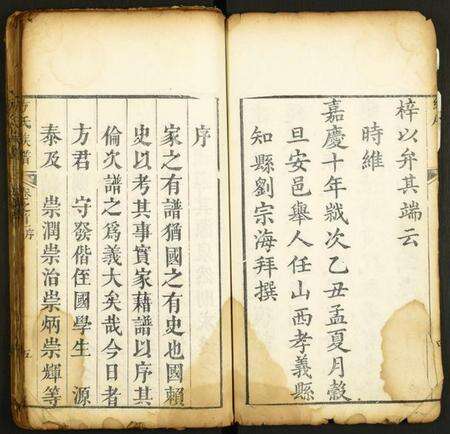 梓以弁其端云
時維
嘉慶十年歲次乙丑孟夏月穀
旦安邑舉人任山西孝義縣
知縣劉宗海拜撰
序
家之有譜猶國之有史也國賴
史以考其事實家藉譜以序其
倫次譜之爲義大矣哉今日者
方君 守發偕侄國學生 源
泰及 崇潤崇治崇炳崇輝等
方氏族譜 序 五